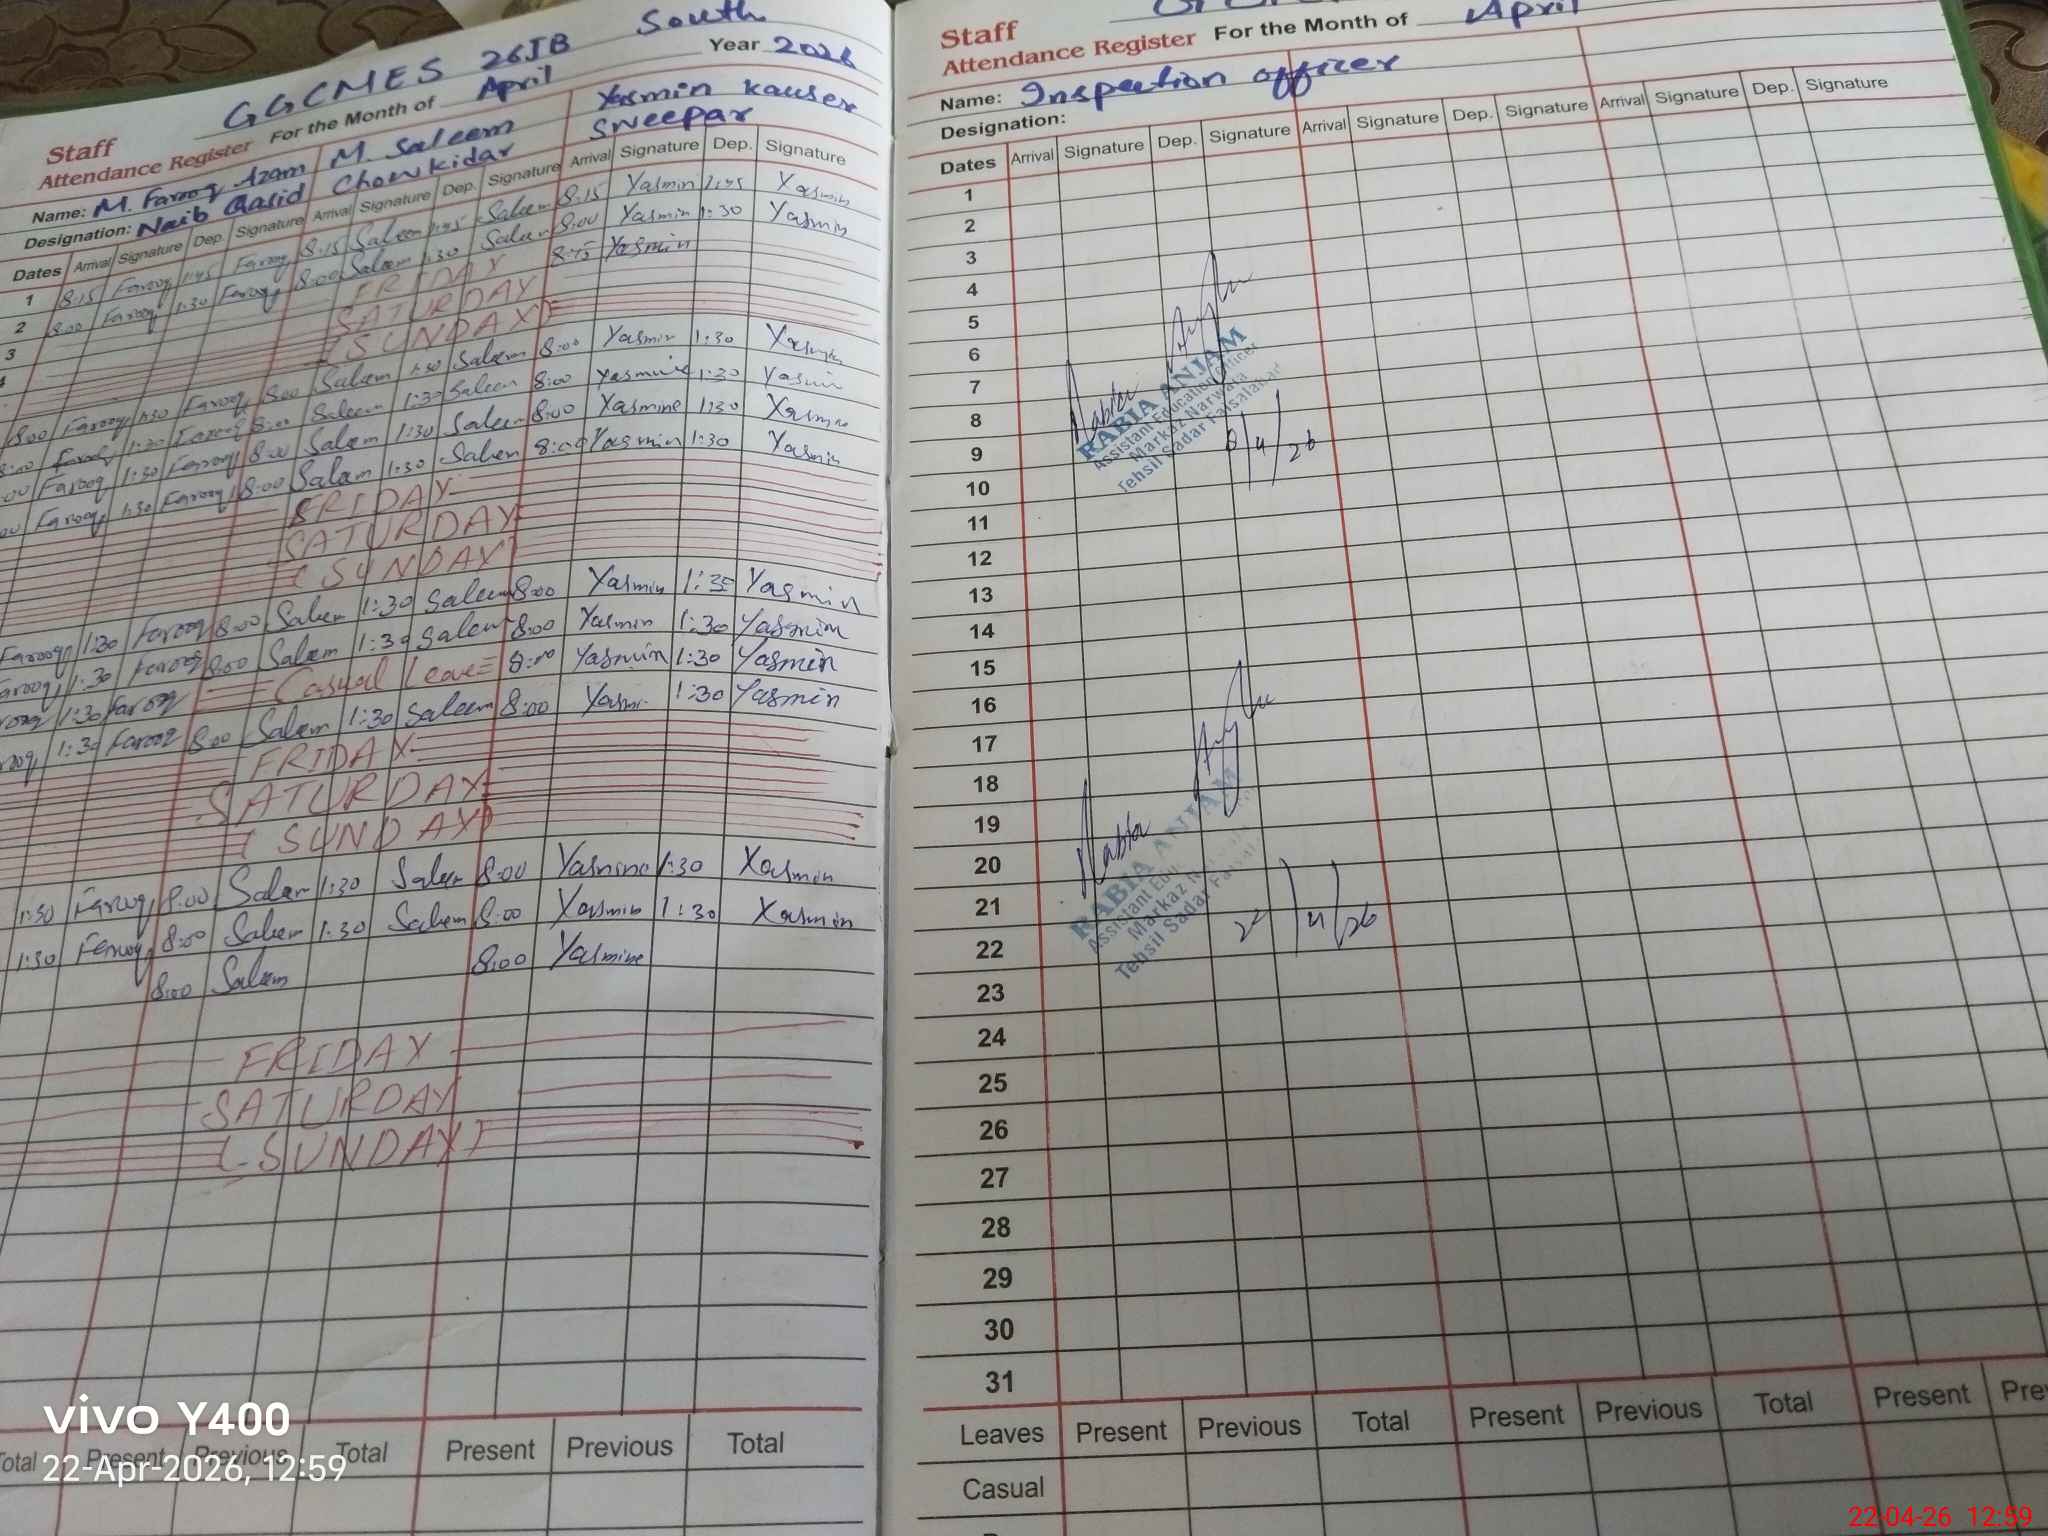 GGCMES 26JB South
Staff
Attendance Register For the Month of April Year 2026
Name: M. Farooq Azam M. Saleem Yasmin kauser
Designation: Naib Qasid Chowkidar Sweepar
Dates Arrival Signature Dep. Signature Arrival Signature Dep. Signature Arrival Signature Dep. Signature
1 8:15 Farooq 1:45 Farooq 8:15 Saleem 1:45 Saleem 8:15 Yasmin 1:45 Yasmin
2 8:00 Farooq 1:30 Farooq 8:00 Saleem 1:30 Saleem 8:00 Yasmin 1:30 Yasmin
3 FRIDAY Yasmin
SATURDAY
(SUNDAY)
8:00 Farooq 1:30 Farooq 8:00 Saleem 1:30 Saleem 8:00 Yasmin 1:30 Yasmin
8:00 Farooq 1:30 Farooq 8:00 Saleem 1:30 Saleem 8:00 Yasmine 1:30 Yasmin
Farooq 1:30 Farooq 8:00 Saleem 1:30 Saleem 8:00 Yasmine 1:30 Yasmine
Farooq 1:30 Farooq 8:00 Saleem 1:30 Saleem 8:00 Yasmin 1:30 Yasmin
FRIDAY
SATURDAY
(SUNDAY)
Farooq 1:30 Farooq 8:00 Saleem 1:30 Saleem 8:00 Yasmin 1:30 Yasmin
Farooq 1:30 Farooq 8:00 Saleem 1:30 Saleem 8:00 Yasmin 1:30 Yasmin
1:30 Farooq Casual Leave 8:00 Yasmin 1:30 Yasmin
1:30 Farooq 8:00 Saleem 1:30 Saleem 8:00 Yasmin 1:30 Yasmin
FRIDAY
SATURDAY
(SUNDAY)
1:30 Farooq 8:00 Saleem 1:30 Saleem 8:00 Yasmine 1:30 Yasmin
1:30 Farooq 8:00 Saleem 1:30 Saleem 8:00 Yasmin 1:30 Yasmin
8:00 Saleem 8:00 Yasmine
FRIDAY
SATURDAY
(SUNDAY)
Total Present Previous Total Present Previous Total
vivo Y400
22-Apr-2026, 12:59
Staff
Attendance Register For the Month of April
Name: Inspection officer
Designation:
Dates Arrival Signature Dep. Signature Arrival Signature Dep. Signature Arrival Signature Dep. Signature
1
2
3
4
5
6
7
8
9
10
11
12
13
14
15
16
17
18
19
20
21
22
23
24
25
26
27
28
29
30
31
Rabia
RABIA ANJAM
Assistant Education Officer
Markaz Narwala
Tehsil Sadar Faisalabad
8/4/26
Rabia
RABIA ANJAM
Assistant Edu
Markaz
Tehsil Sadar
22/4/26
Leaves Present Previous Total Present Previous Total Present Pre
Casual
22-04-26 12:59